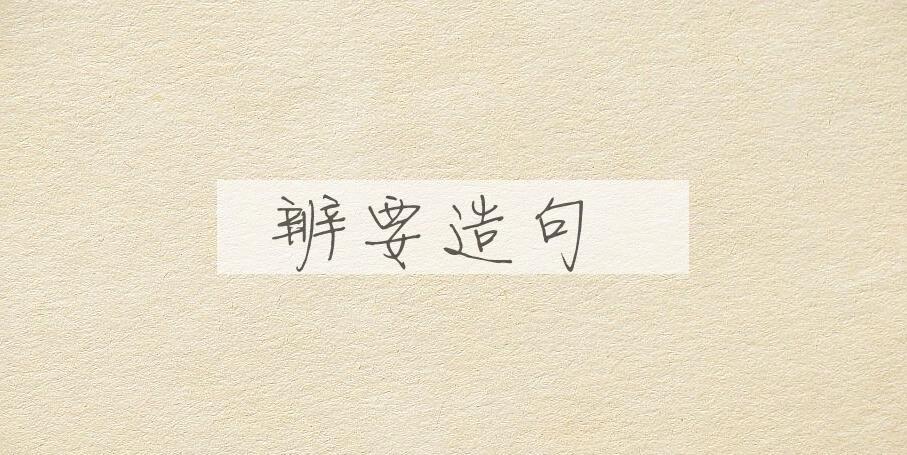 辨要造句